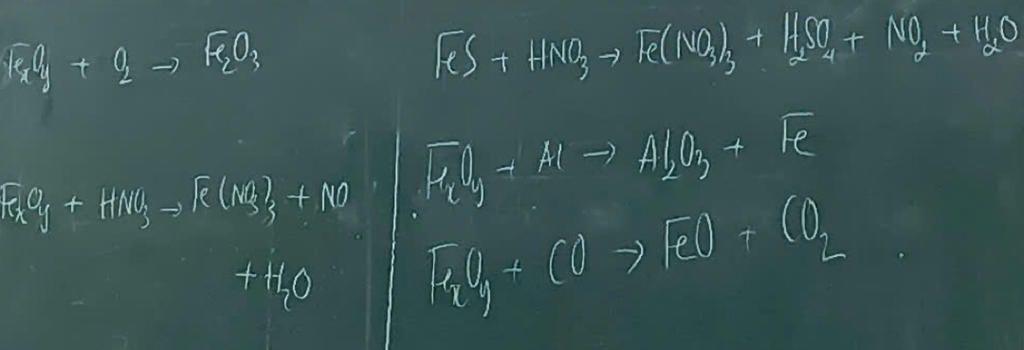 FexOy + O2 → Fe2O3
FexOy + HNO3 → Fe(NO3)3 + NO
+ H2O
FeS + HNO3 → Fe(NO3)3 + H2SO4 + NO2 + H2O
FexOy + Al → Al2O3 + Fe
FexOy + CO → FeO + CO2